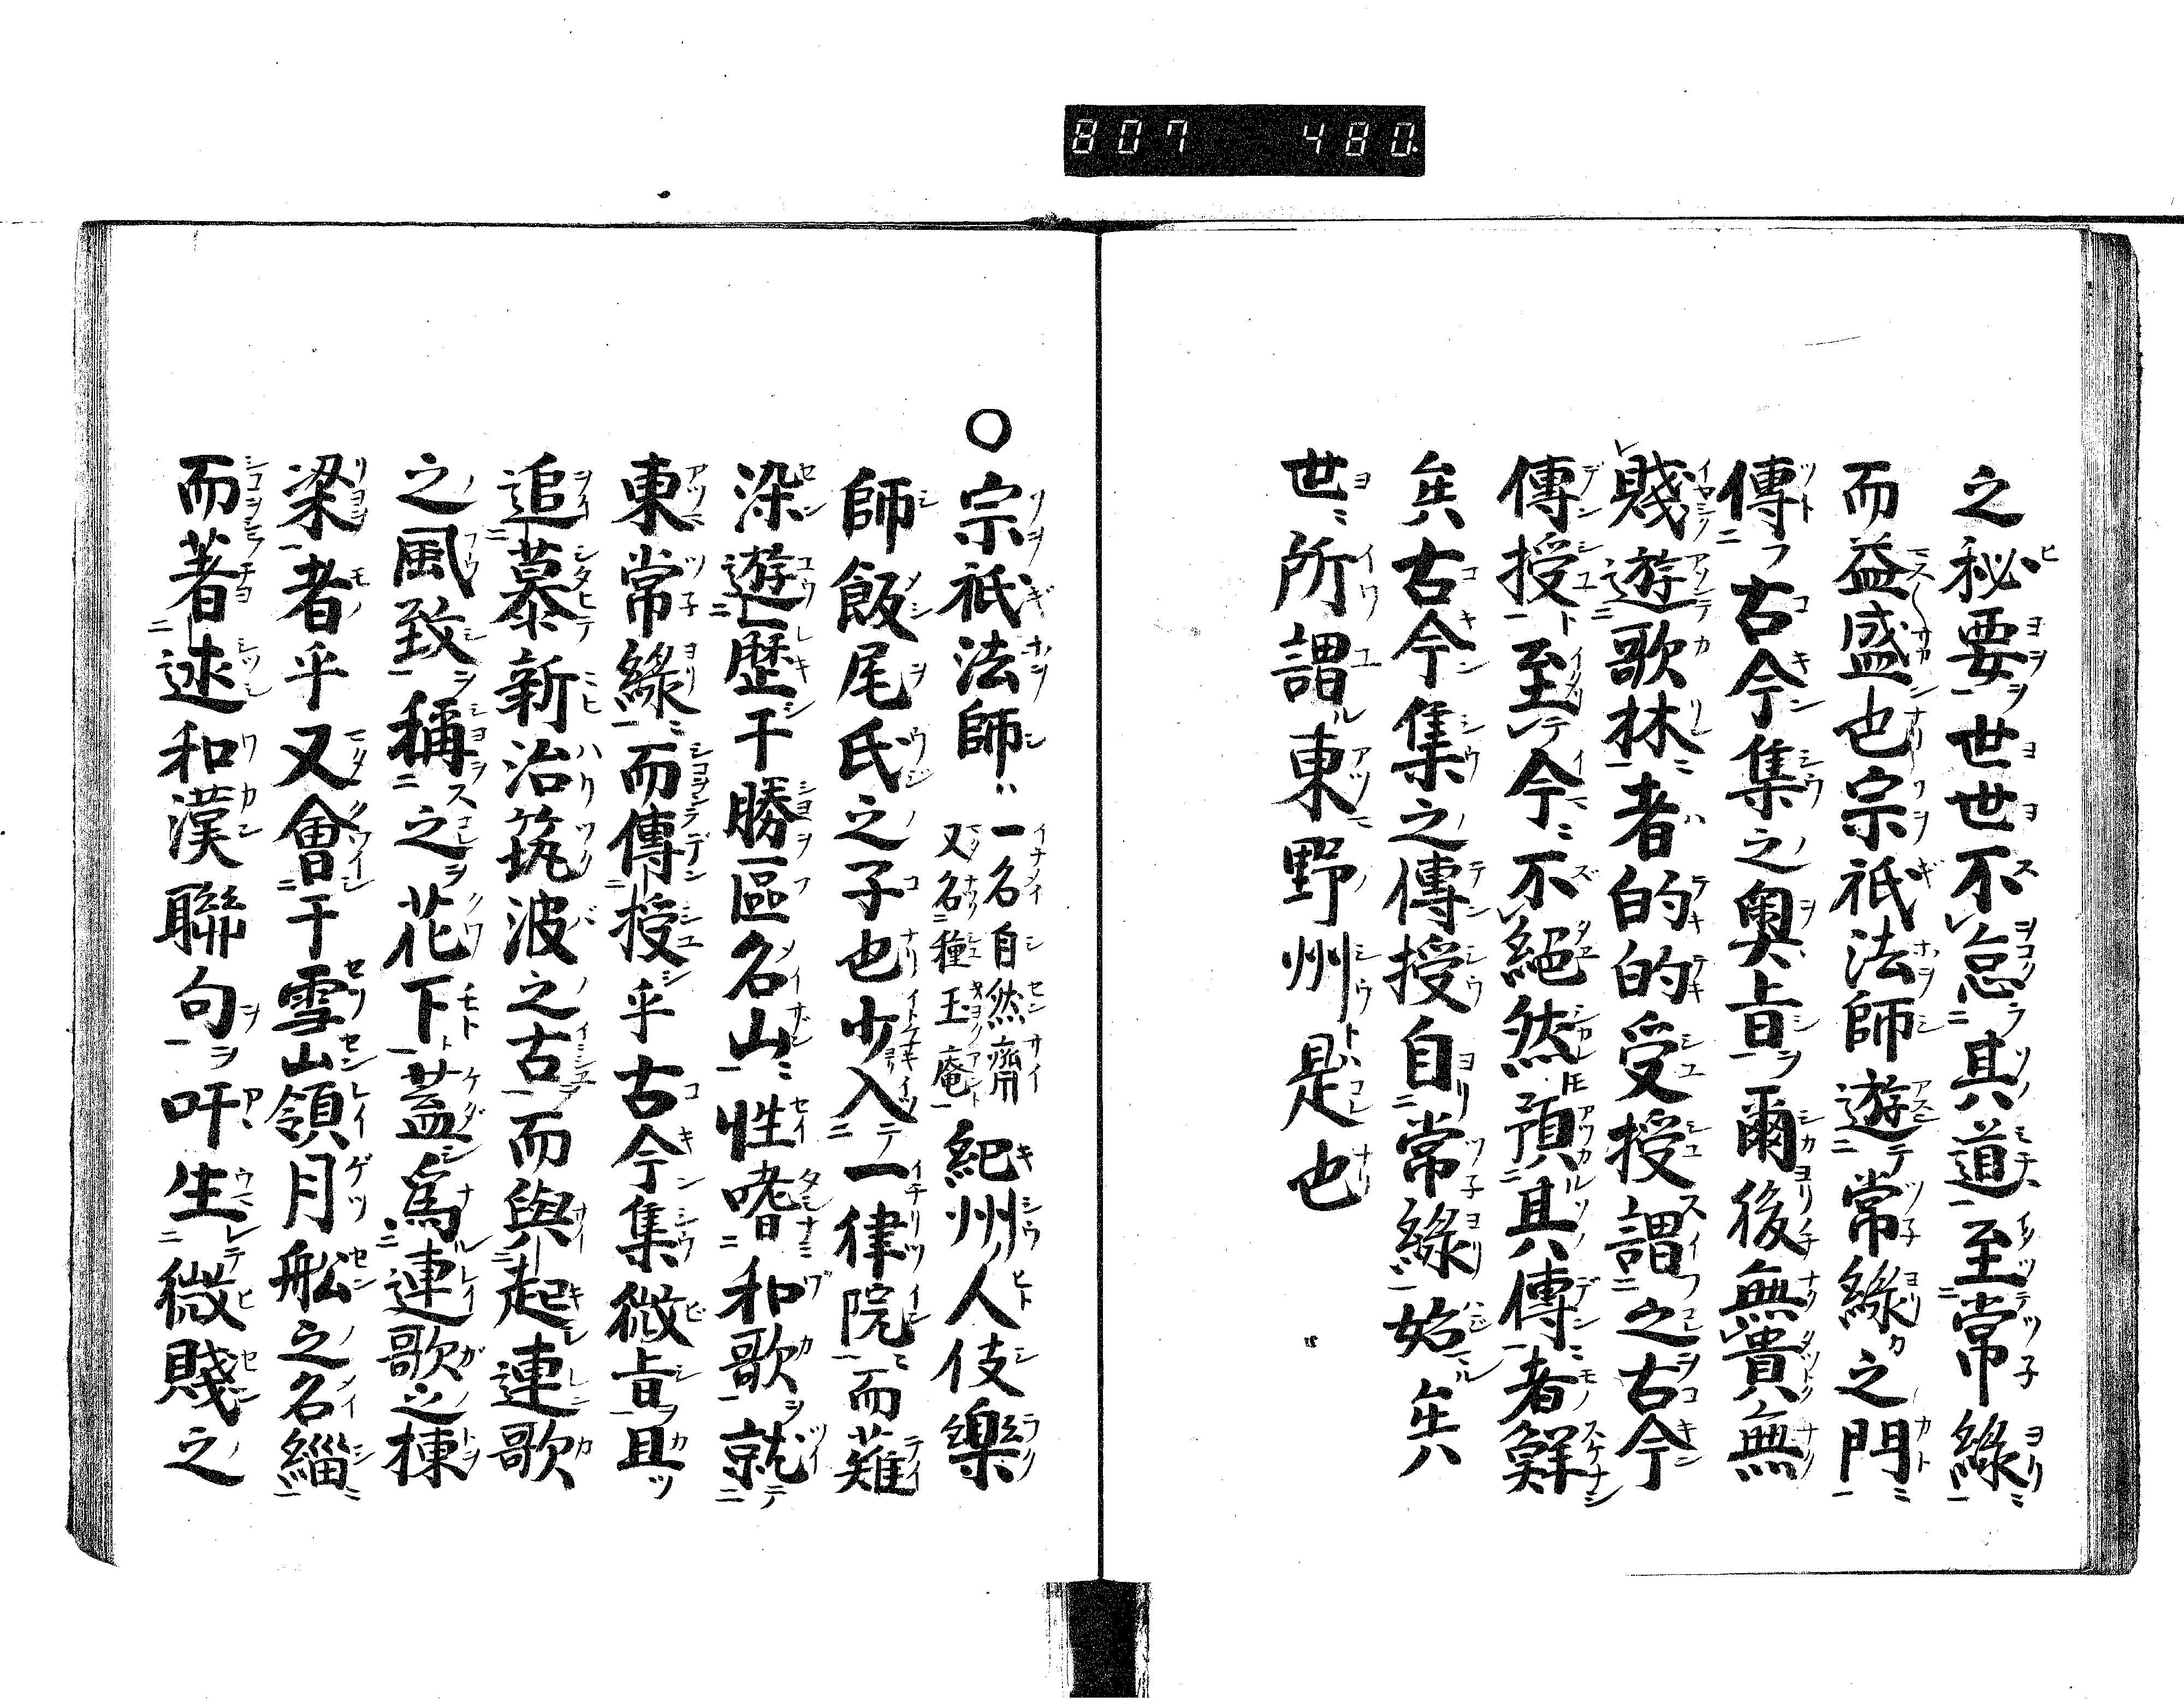 807 480
之秘要世世不怠其道至常緣
而益盛也宗祇法師遊常緣之門
傳古今集之奧旨爾後無貴無
賤遊歌林者的的受授謂之古今
傳授至今不絕然預其傳者鮮
矣古今集之傳授自常緣始矣
世所謂東野州是也
○宗祇法師一名自然齋又名種玉庵紀州人伎樂
師飯尾氏之子也少入一律院而薙
染遊歷于勝區名山性嗜和歌就
東常緣而傳授乎古今集微旨且
追慕新治筑波之古而興起連歌
之風致稱之花下蓋爲連歌之棟
梁者乎又會于雪山領月舩之名緇
而著述和漢聯句吁生微賤之